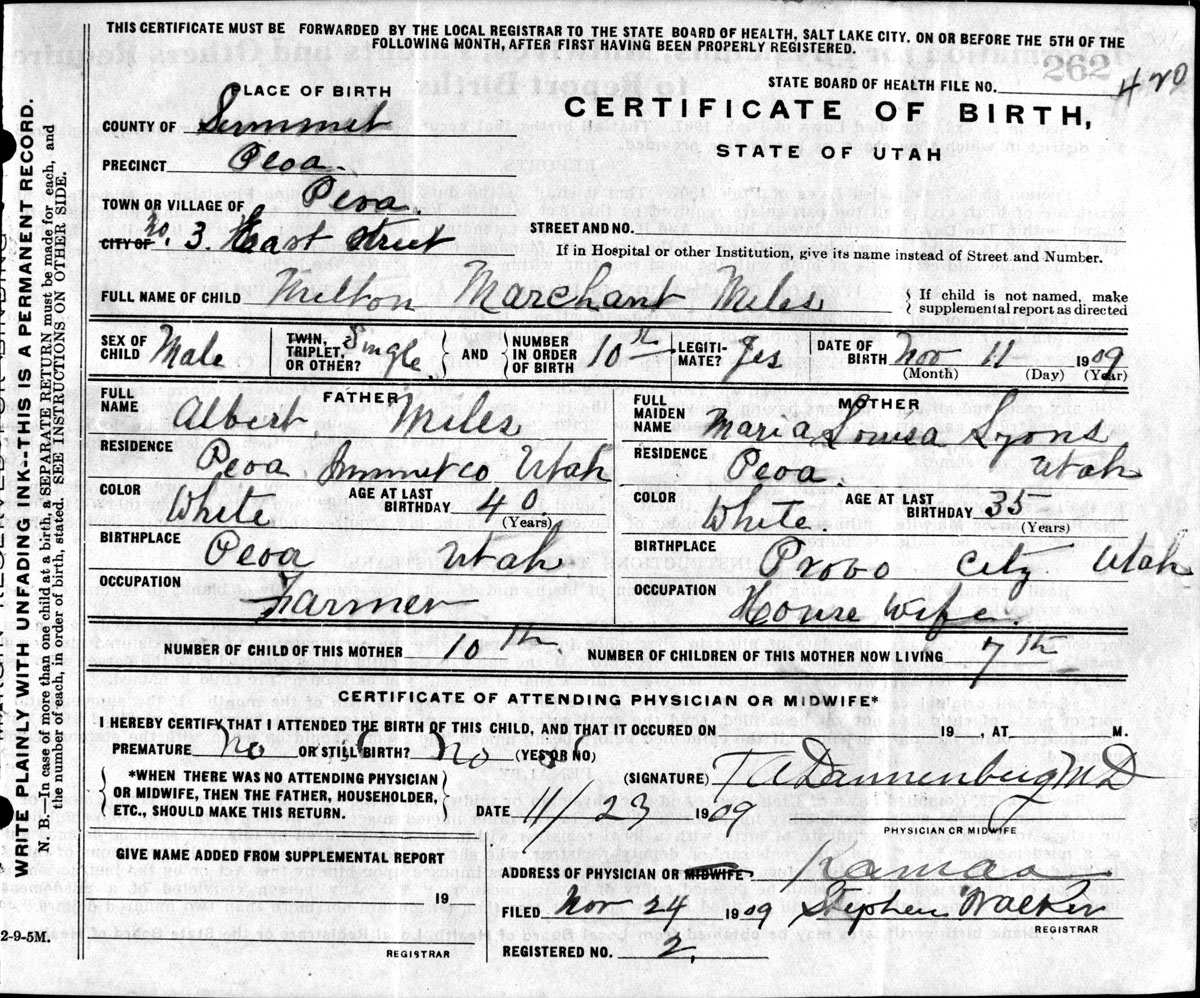 THIS CERTIFICATE MUST BE FORWARDED BY THE LOCAL REGISTRAR TO THE STATE BOARD OF HEALTH, SALT LAKE CITY. ON OR BEFORE THE 5TH OF THE
FOLLOWING MONTH, AFTER FIRST HAVING BEEN PROPERLY REGISTERED.
262
STATE BOARD OF HEALTH FILE NO. 420
PLACE OF BIRTH
CERTIFICATE OF BIRTH,
STATE OF UTAH
COUNTY OF Summet
PRECINCT Peoa.
TOWN OR VILLAGE OF Peoa.
CITY OF No. 3. East Street
STREET AND NO.
If in Hospital or other Institution, give its name instead of Street and Number.
FULL NAME OF CHILD Milton Marchant Miles
If child is not named, make
supplemental report as directed
SEX OF CHILD Male TWIN, TRIPLET, OR OTHER? Single AND NUMBER IN ORDER OF BIRTH 10th LEGITI-MATE? Yes DATE OF BIRTH Nov 11 1909
(Month) (Day) (Year)
FATHER
FULL NAME Albert Miles
RESIDENCE Peoa Summet co Utah
COLOR White AGE AT LAST BIRTHDAY 40.
(Years)
BIRTHPLACE Peoa Utah
OCCUPATION Farmer
MOTHER
FULL MAIDEN NAME Maria Louisa Lyons
RESIDENCE Peoa. Utah
COLOR White. AGE AT LAST BIRTHDAY 35
(Years)
BIRTHPLACE Provo City Utah
OCCUPATION House wife.
NUMBER OF CHILD OF THIS MOTHER 10th. NUMBER OF CHILDREN OF THIS MOTHER NOW LIVING 7th
CERTIFICATE OF ATTENDING PHYSICIAN OR MIDWIFE*
I HEREBY CERTIFY THAT I ATTENDED THE BIRTH OF THIS CHILD, AND THAT IT OCCURED ON 19 , AT M.
PREMATURE No OR STILL BIRTH? No (YES OR NO)
*WHEN THERE WAS NO ATTENDING PHYSICIAN
OR MIDWIFE, THEN THE FATHER, HOUSEHOLDER,
ETC., SHOULD MAKE THIS RETURN.
(SIGNATURE) T A Dannenberg MD
DATE 11/23 1909
PHYSICIAN OR MIDWIFE
GIVE NAME ADDED FROM SUPPLEMENTAL REPORT
19
REGISTRAR
ADDRESS OF PHYSICIAN OR MIDWIFE Kamas
FILED Nov 24 1909 Stephen Walker
REGISTRAR
REGISTERED NO. 2,
2-9-5M.
WRITE PLAINLY WITH UNFADING INK--THIS IS A PERMANENT RECORD.
N. B.—In case of more than one child at a birth, a SEPARATE RETURN must be made for each, and
the number of each, in order of birth, stated. SEE INSTRUCTIONS ON OTHER SIDE.